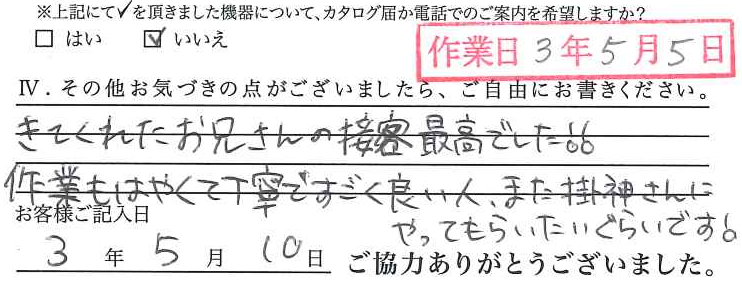 ※上記にて✓を頂きました機器について、カタログ届か電話でのご案内を希望しますか?
☐ はい ☑ いいえ
作業日 3年5月5日
Ⅳ．その他お気づきの点がございましたら、ご自由にお書きください。
きてくれたお兄さんの接客最高でした!!
作業もはやくて丁寧ですごく良い人、また掛神さんに
やってもらいたいぐらいです!
お客様ご記入日
3年5月10日 ご協力ありがとうございました。